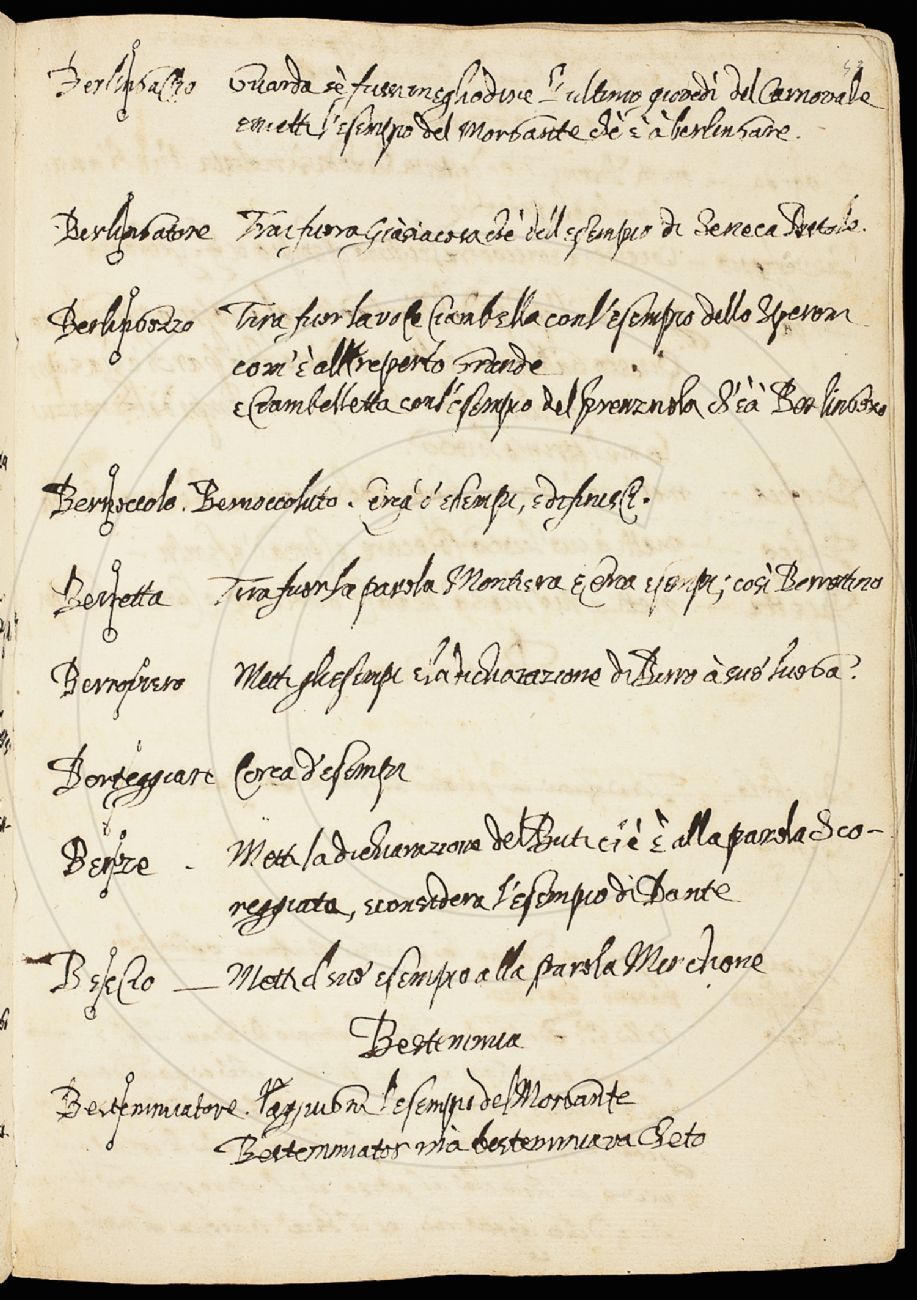 Berlingaccio Guarda se fusse meglio dire L'ultimo giovedì del Carnovale
e metti l'esempio del Morgante ch'è à berlingare.
Berlingatore Trai fuora ch'è dell'esempio di Seneca Pistole.
Berlingozzo Tira fuor la voce Ciambella con l'esempio dello Speron
com'è all reperto grande
e Ciambelletta con l'esempio del Firenzuola ch'è à Berlingozzo
Bernoccolo. Bernoccoluto. Cerca d'esempi, e definisci.
Berretta Tira fuor la parola Montiera e cerca esempi; così Berrettino
Berroviero Metti gli esempi e la dichiarazione di Birro à suo luogo.
Berteggiare Cerca d'esempi
Berze - Metti la dichiarazione del Buti ch'è alla parola Sco-
reggiata, e considera l'esempio di Dante
Bescio — Metti d' suo esempio alla parola Mocione
Bestemmia
Bestemmiatore. l'esempio del Morgante
Bestemmiator mà bestemmiava cheto